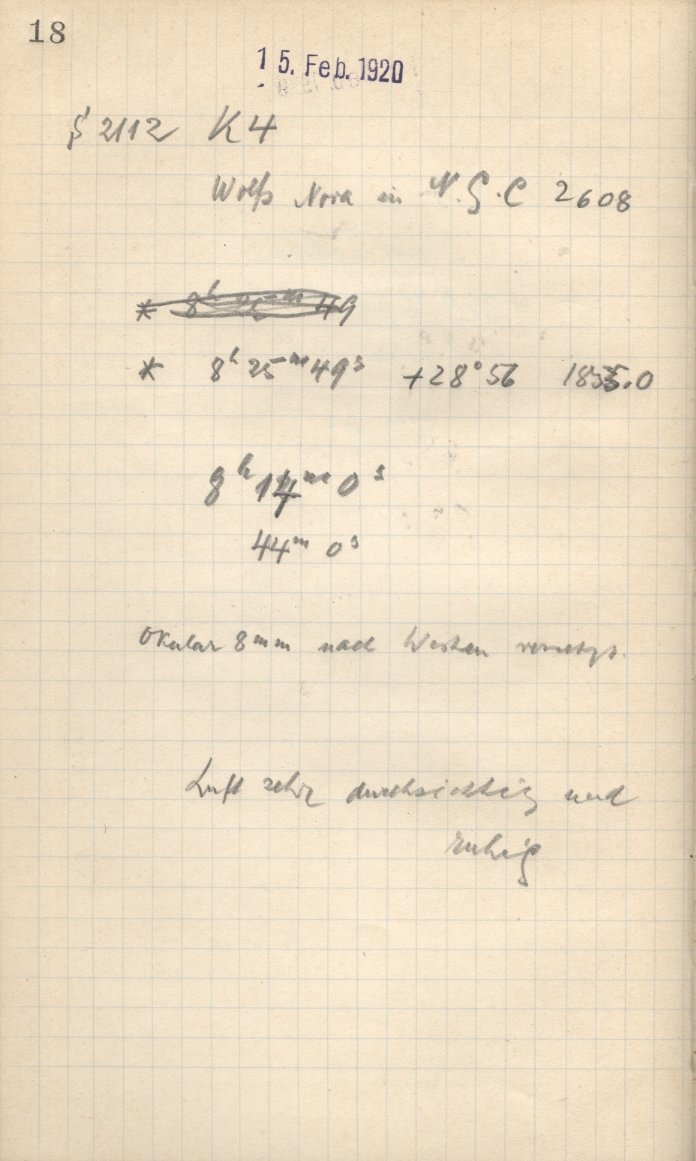 18
15. Feb. 1920
2112 K4
Wolfs Nova in N.G.C 2608
* 8h 25m 49
* 8h 25m 49s +28° 56 1855.0
8h 14m 0s
44m 0s
Okular 8mm nach Westen versetzt.
Luft sehr durchsichtig und
ruhig